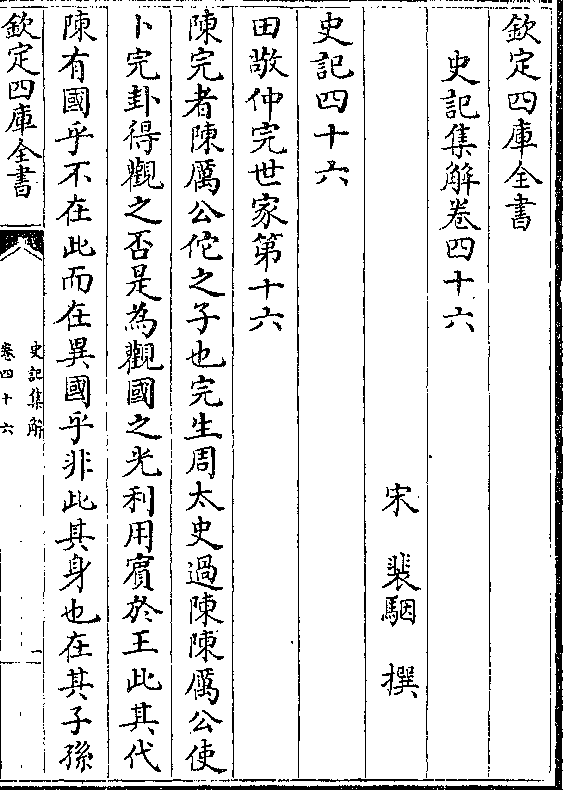 欽定四庫全書
史記集解卷四十六
宋 裴駰 撰
史記四十六
田敬仲完世家第十六
陳完者陳厲公佗之子也完生周太史過陳陳厲公使
卜完卦得觀之否是為觀國之光利用賓於王此其代
陳有國乎不在此而在異國乎非此其身也在其子孫
欽定四庫全書
史記集解
卷四十六
一